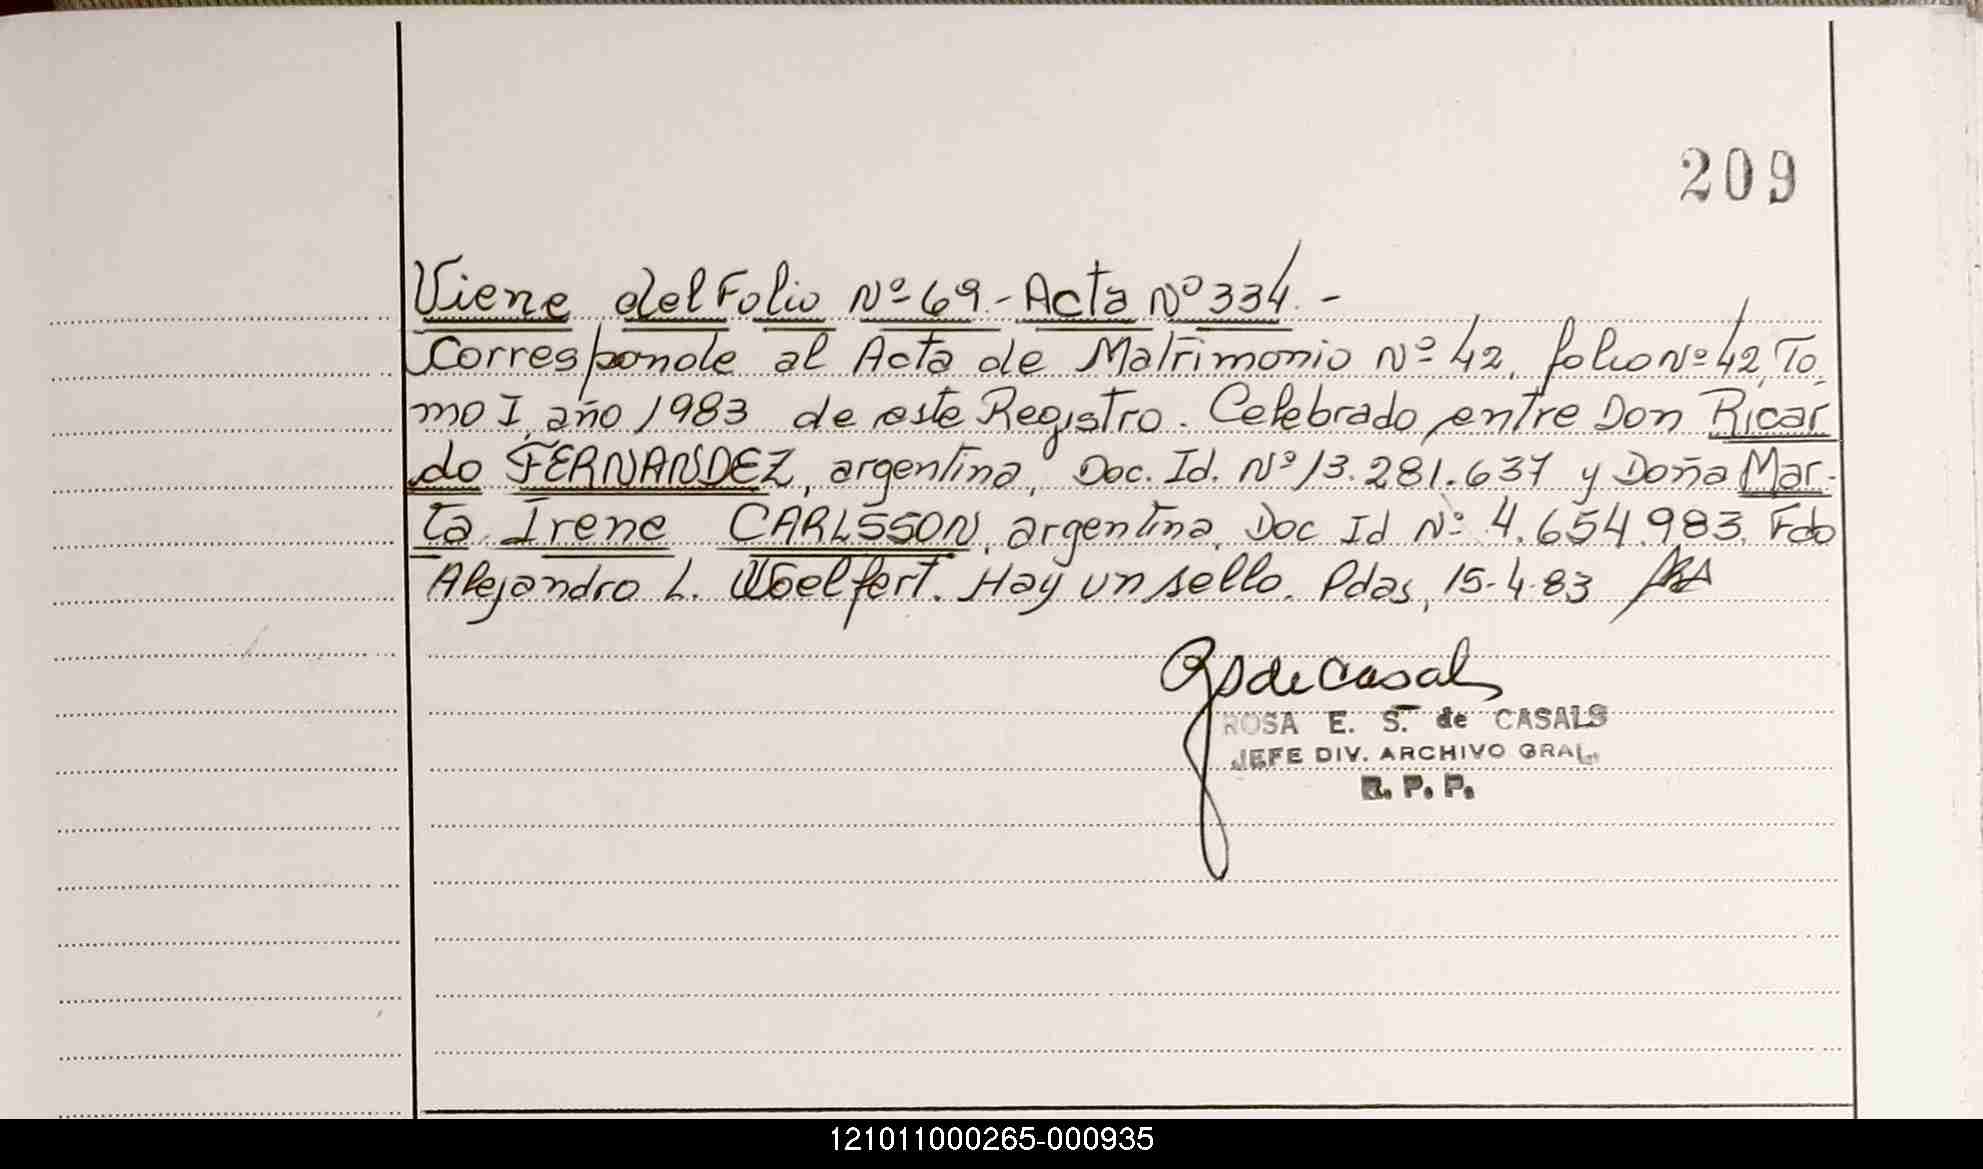 209
Viene del Folio Nº 69 - Acta Nº 334. -
Corresponde al Acta de Matrimonio Nº 42, folio Nº 42, To
mo I, año 1983 de este Registro. Celebrado entre Don Ricar
do FERNANDEZ, argentina, Doc. Id. Nº 13.281.637 y Doña Mar-
ta Irene CARLSSON, argentina, Doc Id Nº 4.654.983. Fdo
Alejandro L. Woelfert. Hay un sello. Pdas, 15-4-83
RSdeCasals
ROSA E. S. de CASALS
JEFE DIV. ARCHIVO GRAL.
R. P. P.
121011000265-000935